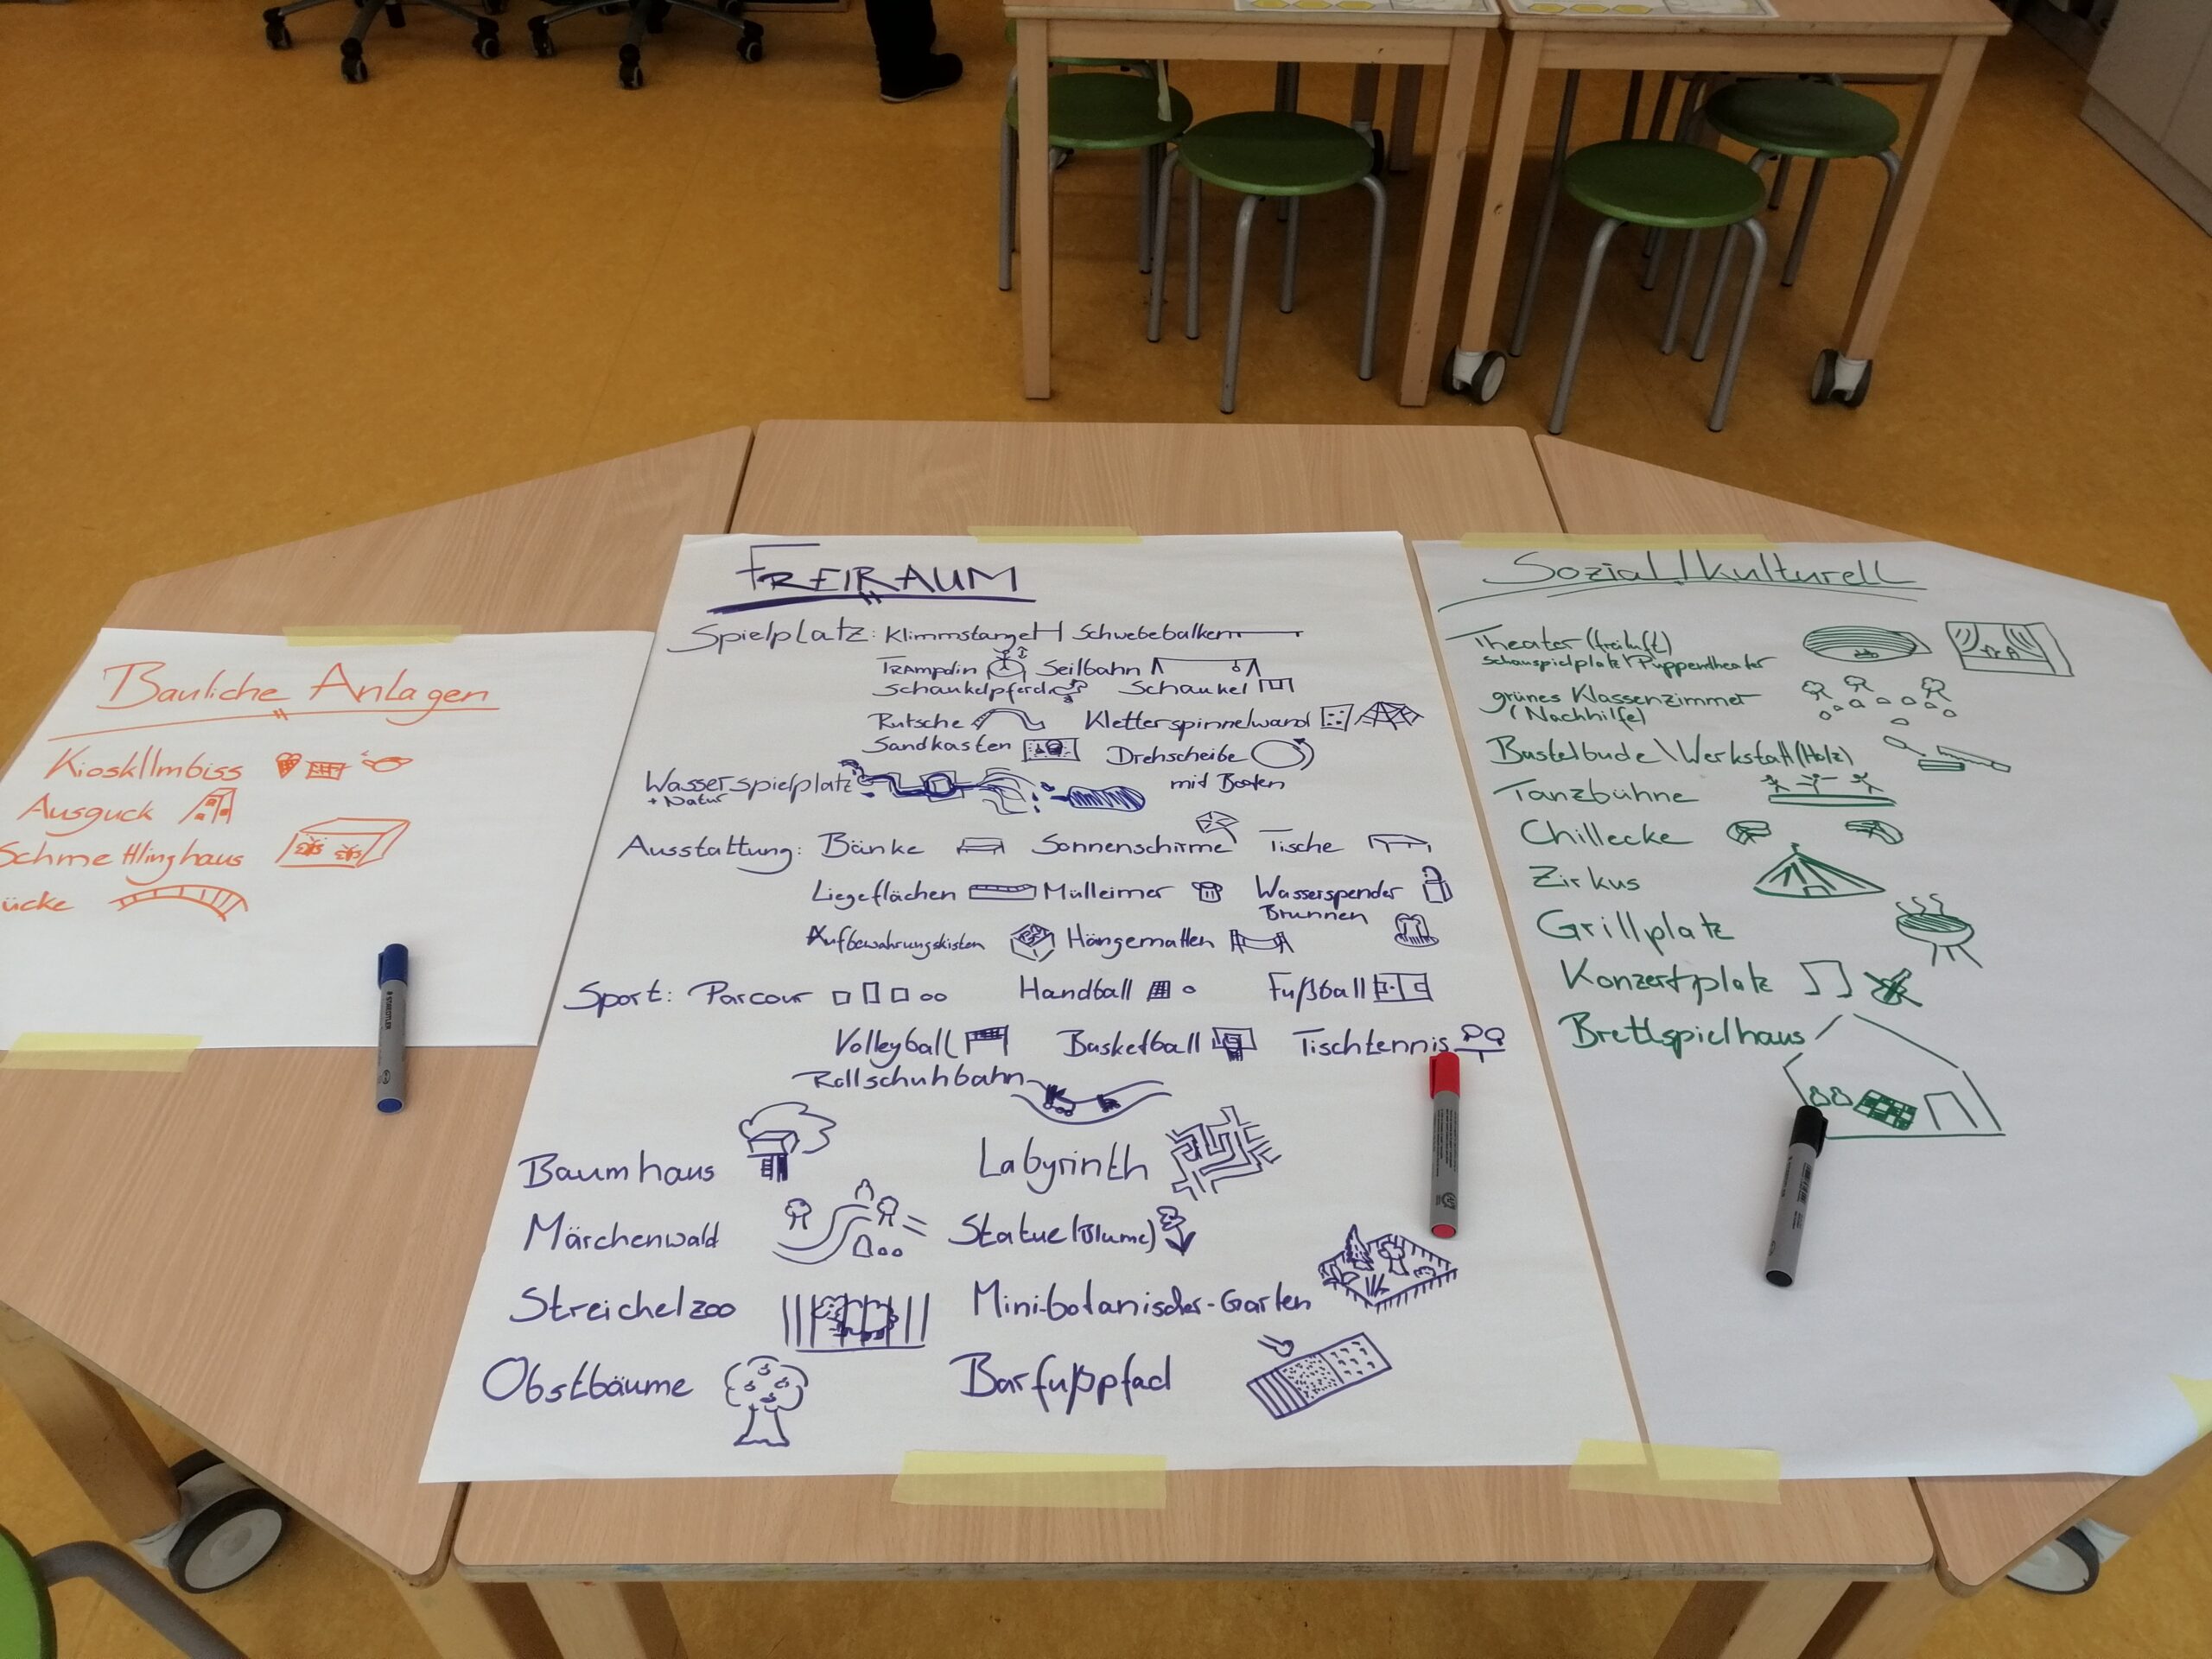 Bauliche Anlagen
Kiosk/Imbiss
Ausguck
Schmetterlinghaus
ücke
FREIRAUM
Spielplatz: Klimmstange Schwebebalken
Trampolin Seilbahn
Schaukelpferd Schaukel
Rutsche Kletterspinne/wand
Sandkasten Drehscheibe
Wasserspielplatz mit Booten
+ Natur
Ausstattung: Bänke Sonnenschirme Tische
Liegeflächen Mülleimer Wasserspender
Brunnen
Aufbewahrungskisten Hängematten
Sport: Parcour Handball Fußball
Volleyball Basketball Tischtennis
Rollschuhbahn
Baumhaus Labyrinth
Märchenwald Statue (Blume)
Streichelzoo Mini-botanischer-Garten
Obstbäume Barfußpfad
Sozial/kulturell
Theater (freiluft)
Schauspielplatz/Puppentheater
grünes Klassenzimmer
(Nachhilfe)
Bastelbude\Werkstatt (Holz)
Tanzbühne
Chillecke
Zirkus
Grillplatz
Konzertplatz
Brettspielhaus
STAEDTLER